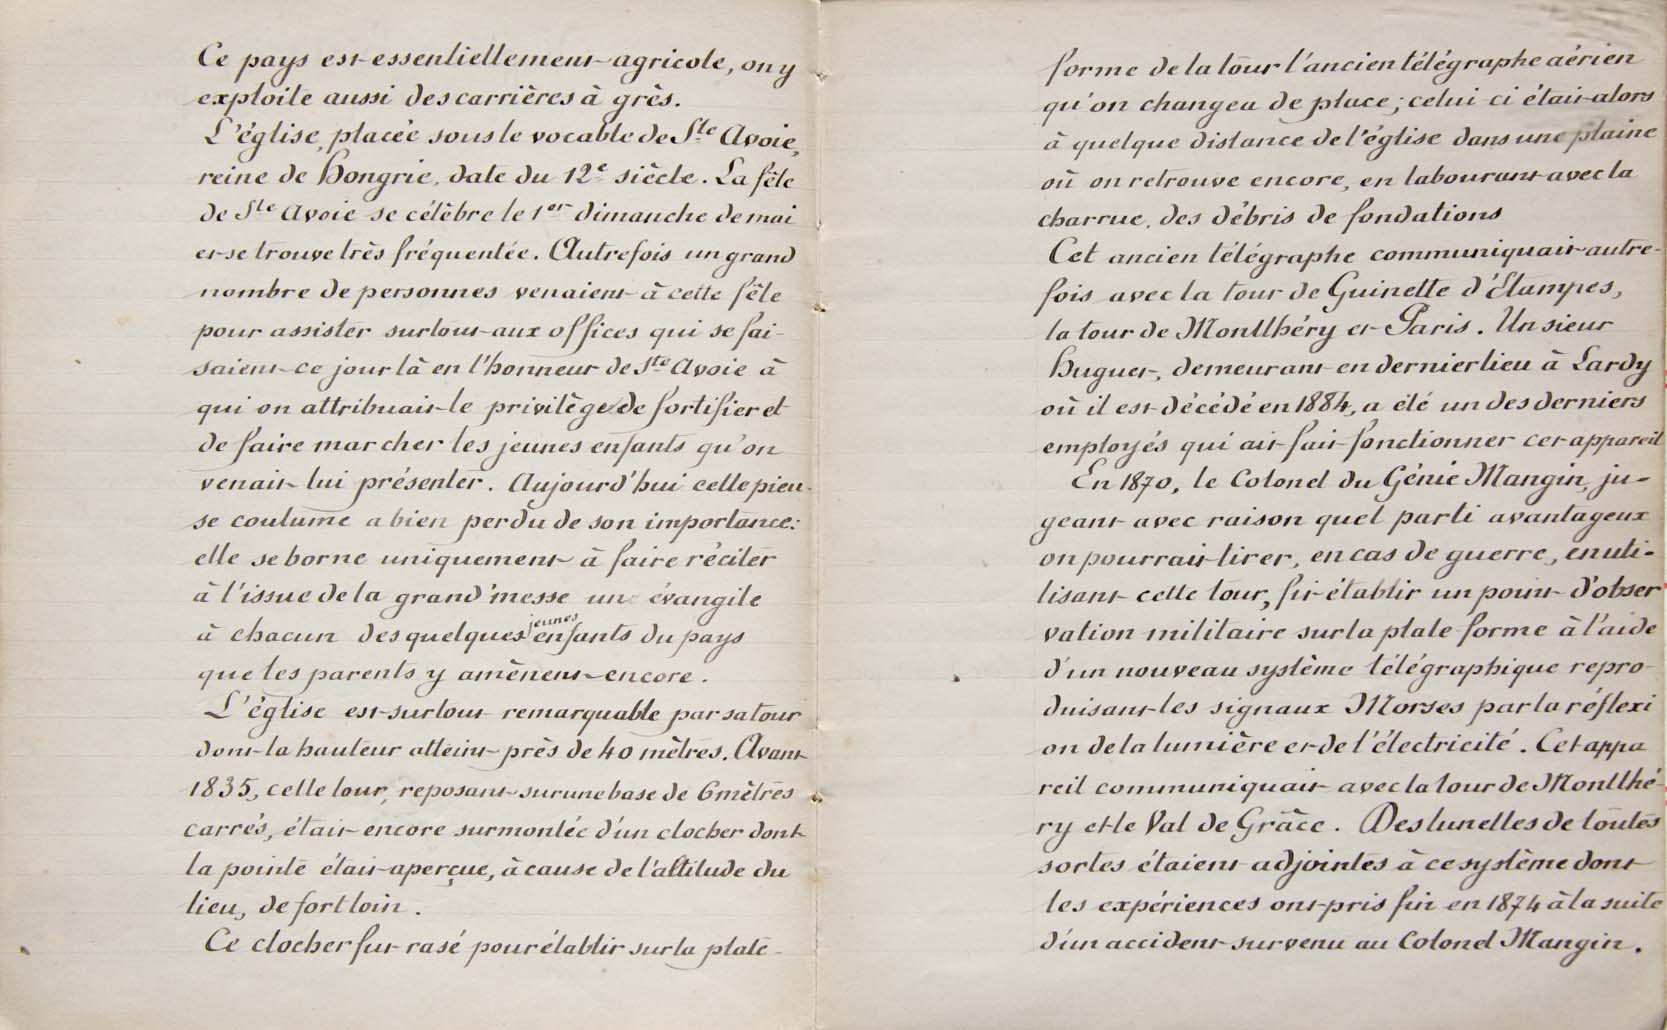 Ce pays est essentiellement agricole, on y
exploite aussi des carrières à grès.
L'église, placée sous le vocable de Ste Avoie,
reine de Hongrie, date du 12e siècle. La fête
de Ste Avoie se célèbre le 1er dimanche de mai
et se trouve très fréquentée. Autrefois un grand
nombre de personnes venaient à cette fête
pour assister surtout aux offices qui se fai-
saient ce jour là en l'honneur de Ste Avoie à
qui on attribuait le privilège de fortifier et
de faire marcher les jeunes enfants qu'on
venait lui présenter. Aujourd'hui cette pieu-
se coutume a bien perdu de son importance:
elle se borne uniquement à faire réciter
à l'issue de la grand'messe un évangile
à chacun des quelques jeunes enfants du pays
que les parents y amènent encore.
L'église est surtout remarquable par sa tour
dont la hauteur atteint près de 40 mètres. Avant
1835, cette tour, reposant sur une base de 6 mètres
carrés, était encore surmontée d'un clocher dont
la pointe était aperçue, à cause de l'altitude du
lieu, de fort loin.
Ce clocher fut rasé pour établir sur la plate-
forme de la tour l'ancien télégraphe aérien
qu'on changea de place; celui-ci était alors
à quelque distance de l'église dans une plaine
où on retrouve encore, en labourant avec la
charrue, des débris de fondations
Cet ancien télégraphe communiquait autre-
fois avec la tour de Guinette d'Etampes,
la tour de Montlhéry et Paris. Un sieur
Huguet, demeurant en dernier lieu à Lardy
où il est décédé en 1884, a été un des derniers
employés qui ait fait fonctionner cet appareil
En 1870, le Colonel du Génie Mangin, ju-
geant avec raison quel parti avantageux
on pourrait tirer, en cas de guerre, en uti-
lisant cette tour, fit établir un point d'obser
vation militaire sur la plate-forme à l'aide
d'un nouveau système télégraphique repro-
duisant les signaux Morses par la réflexi
on de la lumière et de l'électricité. Cet appa
reil communiquait avec la tour de Montlhé-
ry et le Val de Grâce. Des lunettes de toutes
sortes étaient adjointes à ce système dont
les expériences ont pris fin en 1874 à la suite
d'un accident survenu au Colonel Mangin.